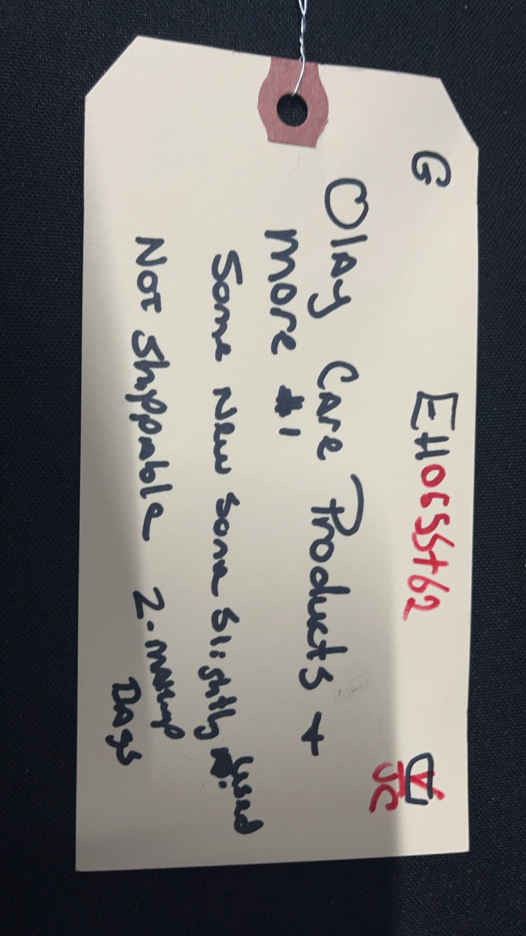 G EH0655t62
JC
Olay Care Products +
more #1
Some New Some Slightly used
Not Shippable 2-makeup
Bags